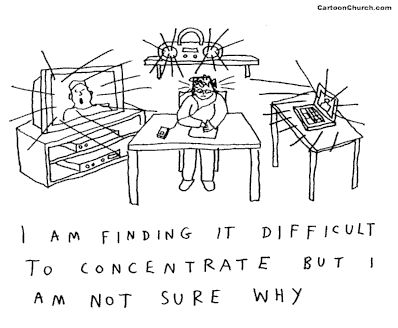 CartoonChurch.com
I AM FINDING IT DIFFICULT
TO CONCENTRATE BUT I
AM NOT SURE WHY